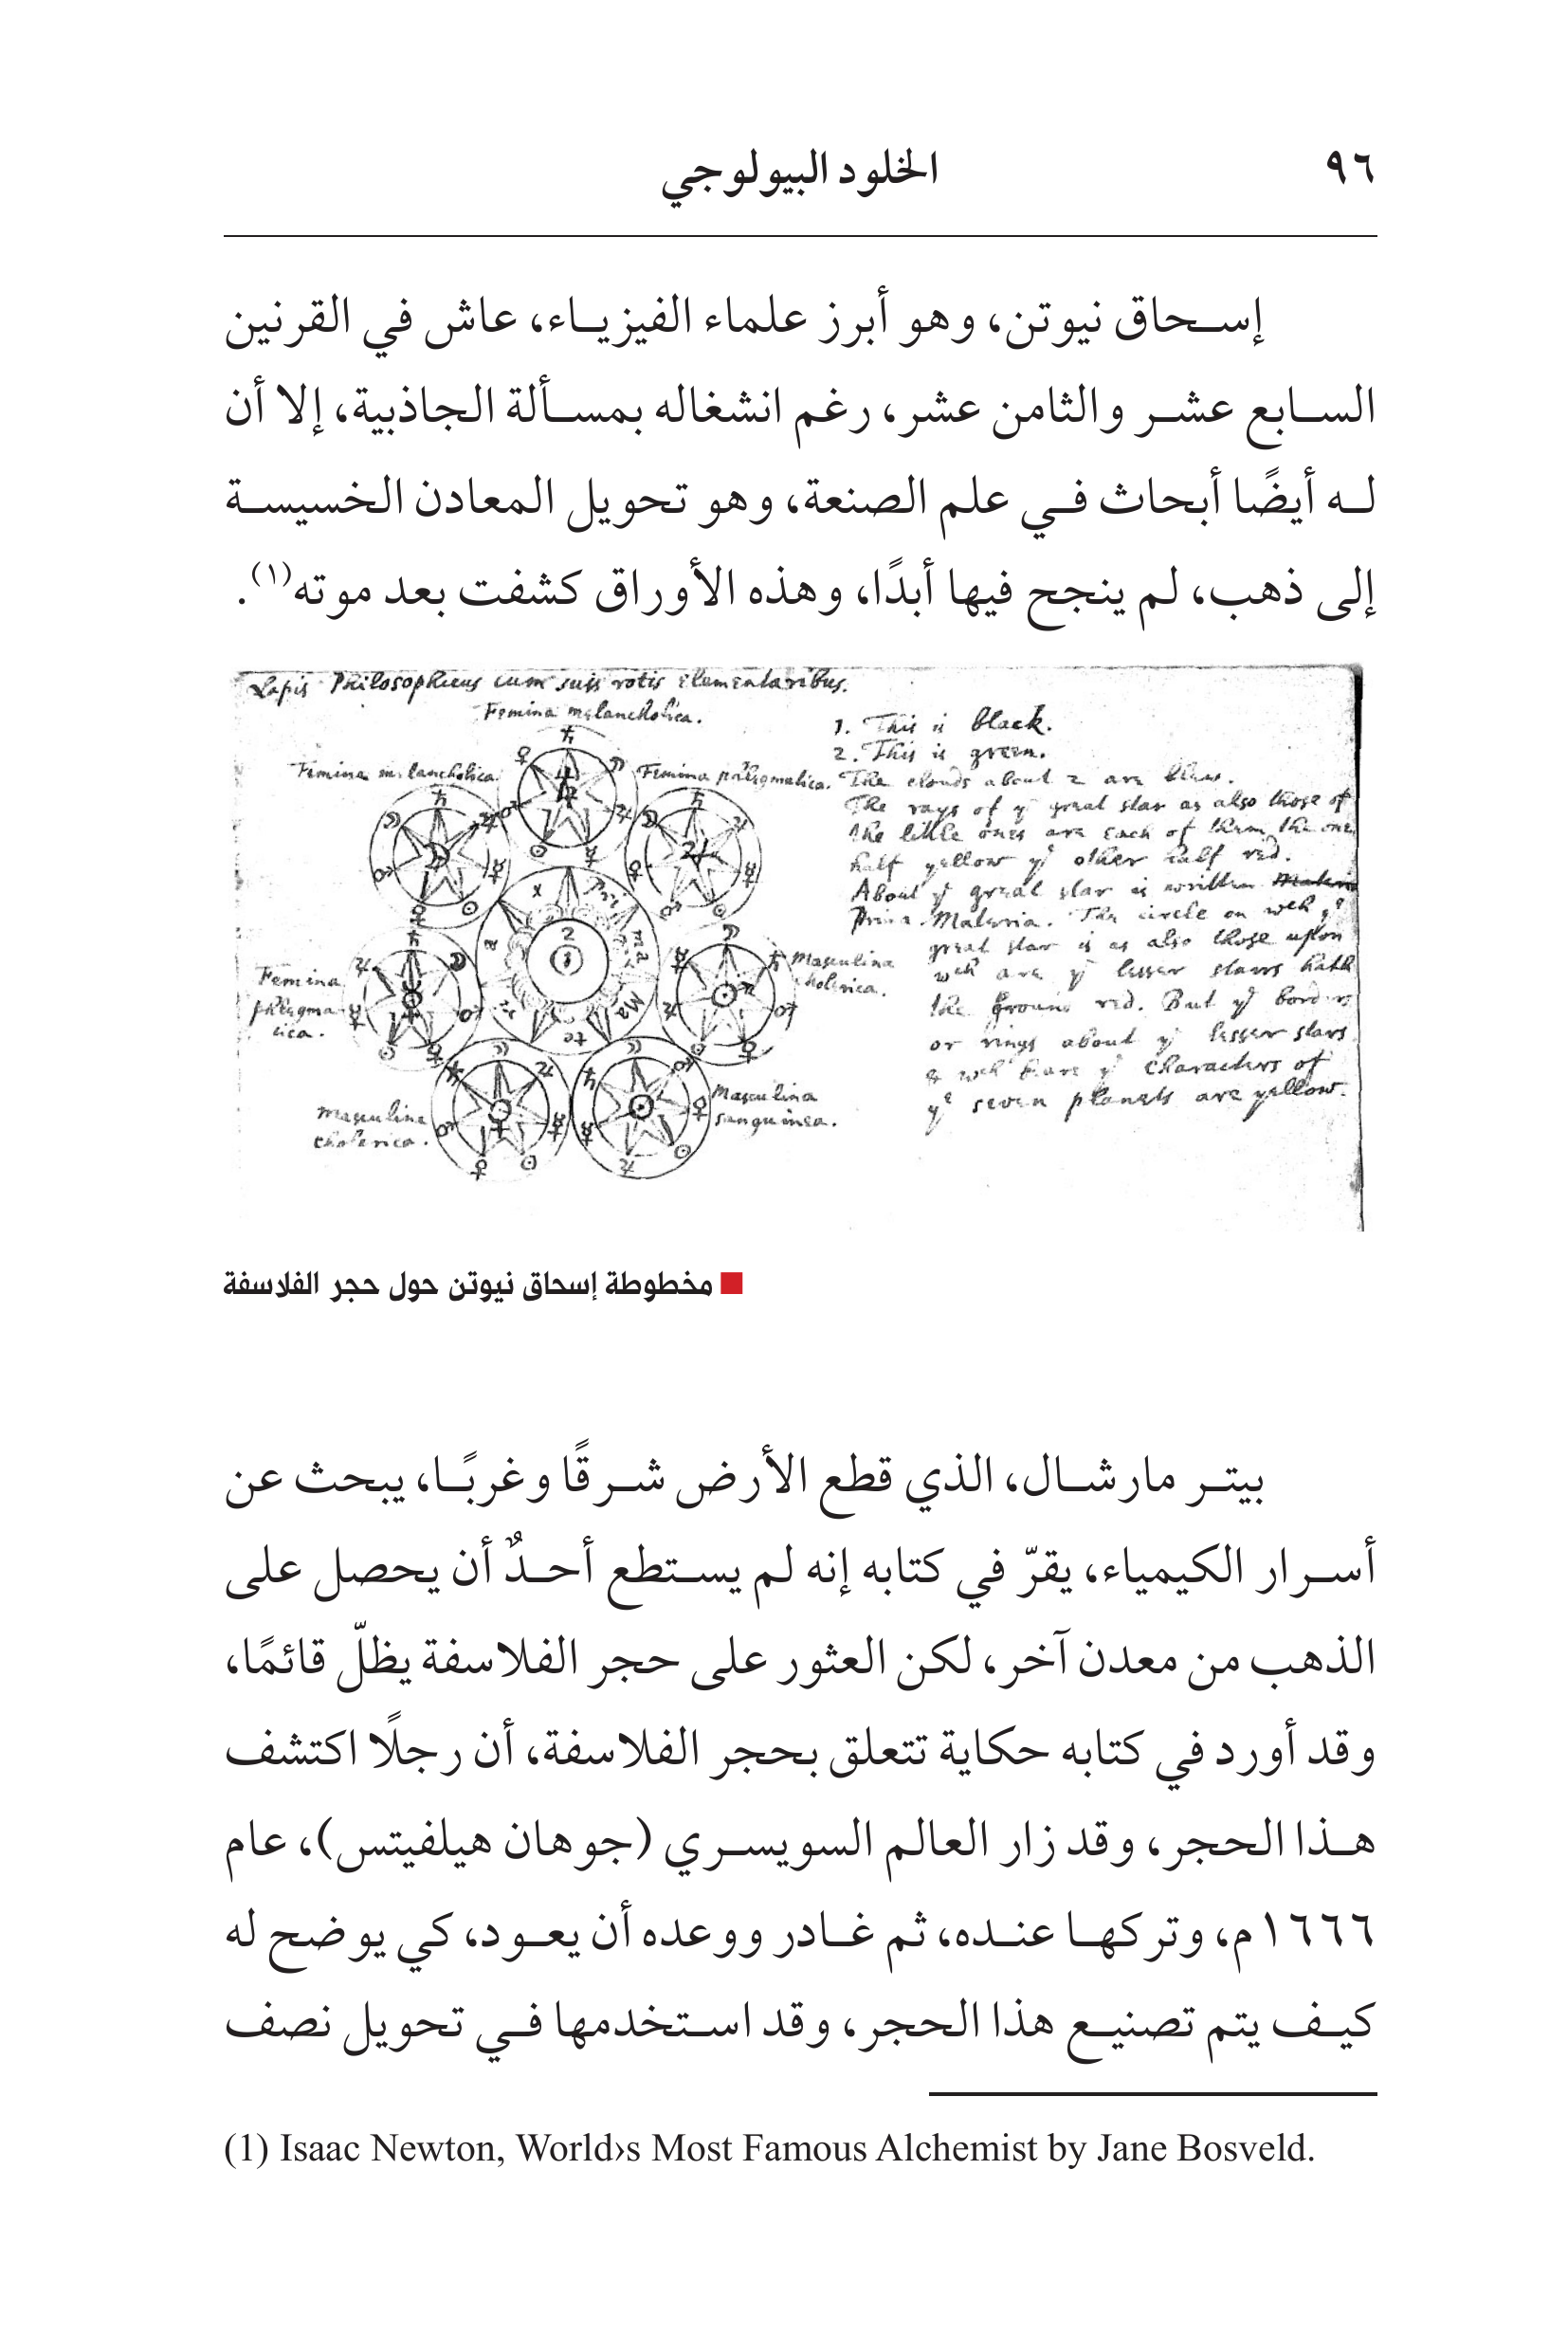 ٩٦
الخلود البيولوجي
إسحاق نيوتن، وهو أبرز علماء الفيزياء، عاش في القرنين
السابع عشر والثامن عشر، رغم انشغاله بمسألة الجاذبية، إلا أن
له أيضًا أبحاث في علم الصنعة، وهو تحويل المعادن الخسيسة
إلى ذهب، لم ينجح فيها أبدًا، وهذه الأوراق كشفت بعد موته(١).
Lapis Philosophicus cum suis rotis elementaribus.
Femina melancholica.
Femina melancholica.
Femina phlegmatica.
Femina
phlegma
tica.
Masculina
cholerica.
Masculina
cholerica.
Masculina
sanguinea.
1. This is black.
2. This is green.
The clouds about 2 are blew.
The rays of ye great star as also those of
the little ones are each of them the one
half yellow ye other half red.
About ye great star is written
Prima Materia. The circle on wch ye
great star is as also those upon
wch are ye lesser starrs hath
the ground red. But ye borders
or rings about ye lesser stars
& wch beare ye characters of
ye seven planets are yellow.
مخطوطة إسحاق نيوتن حول حجر الفلاسفة
بيتر مارشال، الذي قطع الأرض شرقًا وغربًا، يبحث عن
أسرار الكيمياء، يقرّ في كتابه إنه لم يستطع أحدٌ أن يحصل على
الذهب من معدن آخر، لكن العثور على حجر الفلاسفة يظلّ قائمًا،
وقد أورد في كتابه حكاية تتعلق بحجر الفلاسفة، أن رجلًا اكتشف
هذا الحجر، وقد زار العالم السويسري (جوهان هيلفيتس)، عام
١٦٦٦م، وتركها عنده، ثم غادر ووعده أن يعود، كي يوضح له
كيف يتم تصنيع هذا الحجر، وقد استخدمها في تحويل نصف
(1) Isaac Newton, World›s Most Famous Alchemist by Jane Bosveld.